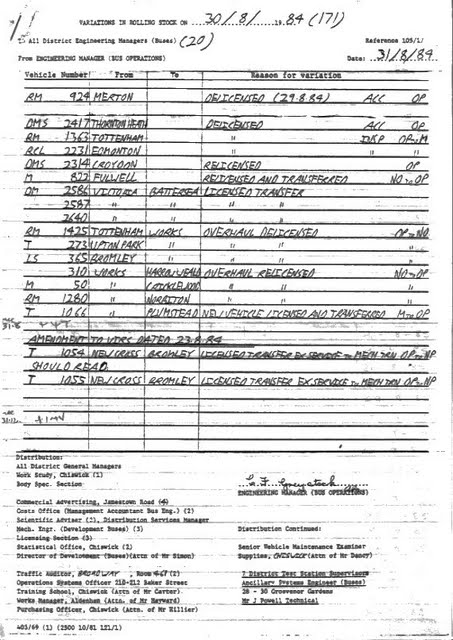 VARIATIONS IN ROLLING STOCK ON 30/8/ 1984 (171)
To All District Engineering Managers (Buses) (20) Reference 105/1/
From ENGINEERING MANAGER (BUS OPERATIONS) Date: 31/8/84
Vehicle Number From To Reason for variation
RM 924 MERTON DELICENSED (29.8.84) ACC OP
DMS 2417 THORNTON HEATH DELICENSED ACC OP
RM 1363 TOTTENHAM " INSP OP to M
RCL 2231 EDMONTON " "
DMS 2314 CROYDON RELICENSED OP
M 822 FULWELL RELICENSED AND TRANSFERRED NO to OP
DM 2586 VICTORIA BATTERSEA LICENSED TRANSFER
2587 " " "
2640 " " "
RM 1425 TOTTENHAM WORKS OVERHAUL DELICENSED OP to NO
T 273 UPTON PARK " " "
LS 365 BROMLEY " " "
310 WORKS HARROW WEALD OVERHAUL RELICENSED NO to OP
M 50 " CRICKLEWOOD " "
RM 1280 " NORBITON " "
T 1066 PLUMSTEAD NEW VEHICLE LICENSED AND TRANSFERRED M to OP
AMENDMENT TO VIRS DATED 23.8.84
T 1054 NEW CROSS BROMLEY LICENSED TRANSFER EX SERVICE to MECH TRN OP to NP
SHOULD READ
T 1055 NEW CROSS BROMLEY LICENSED TRANSFER EX SERVICE to MECH TRN OP to NP
Distribution:
All District General Managers
Work Study, Chiswick (1)
Body Spec. Section
ENGINEERING MANAGER (BUS OPERATIONS)
Commercial Advertising, Jamestown Road (4)
Costs Office (Management Accountant Bus Eng.) (2)
Scientific Adviser (2), Distribution Services Manager
Mech. Engr. (Development Buses) (3) Distribution Continued:
Licensing Section (3)
Statistical Office, Chiswick (1) Senior Vehicle Maintenance Examiner
Director of Development (Buses)(Attn of Mr Simon) Supplies, CHISWICK (Attn of Mr Dancy)
Traffic Auditor, BROADWAY, Room 467 (2) 7 District Test Station Supervisors
Operations Systems Officer 210-212 Baker Street Ancillary Systems Engineer (Buses)
Training School, Chiswick (Attn of Mr Carter) 28 - 30 Grosvenor Gardens
Works Manager, Aldenham (Attn. of Mr Harward) Mr J Powell Technical
Purchasing Officer, Chiswick (Attn of Mr Hillier)
403/69 (1) (2500 10/81 LZ1/1)